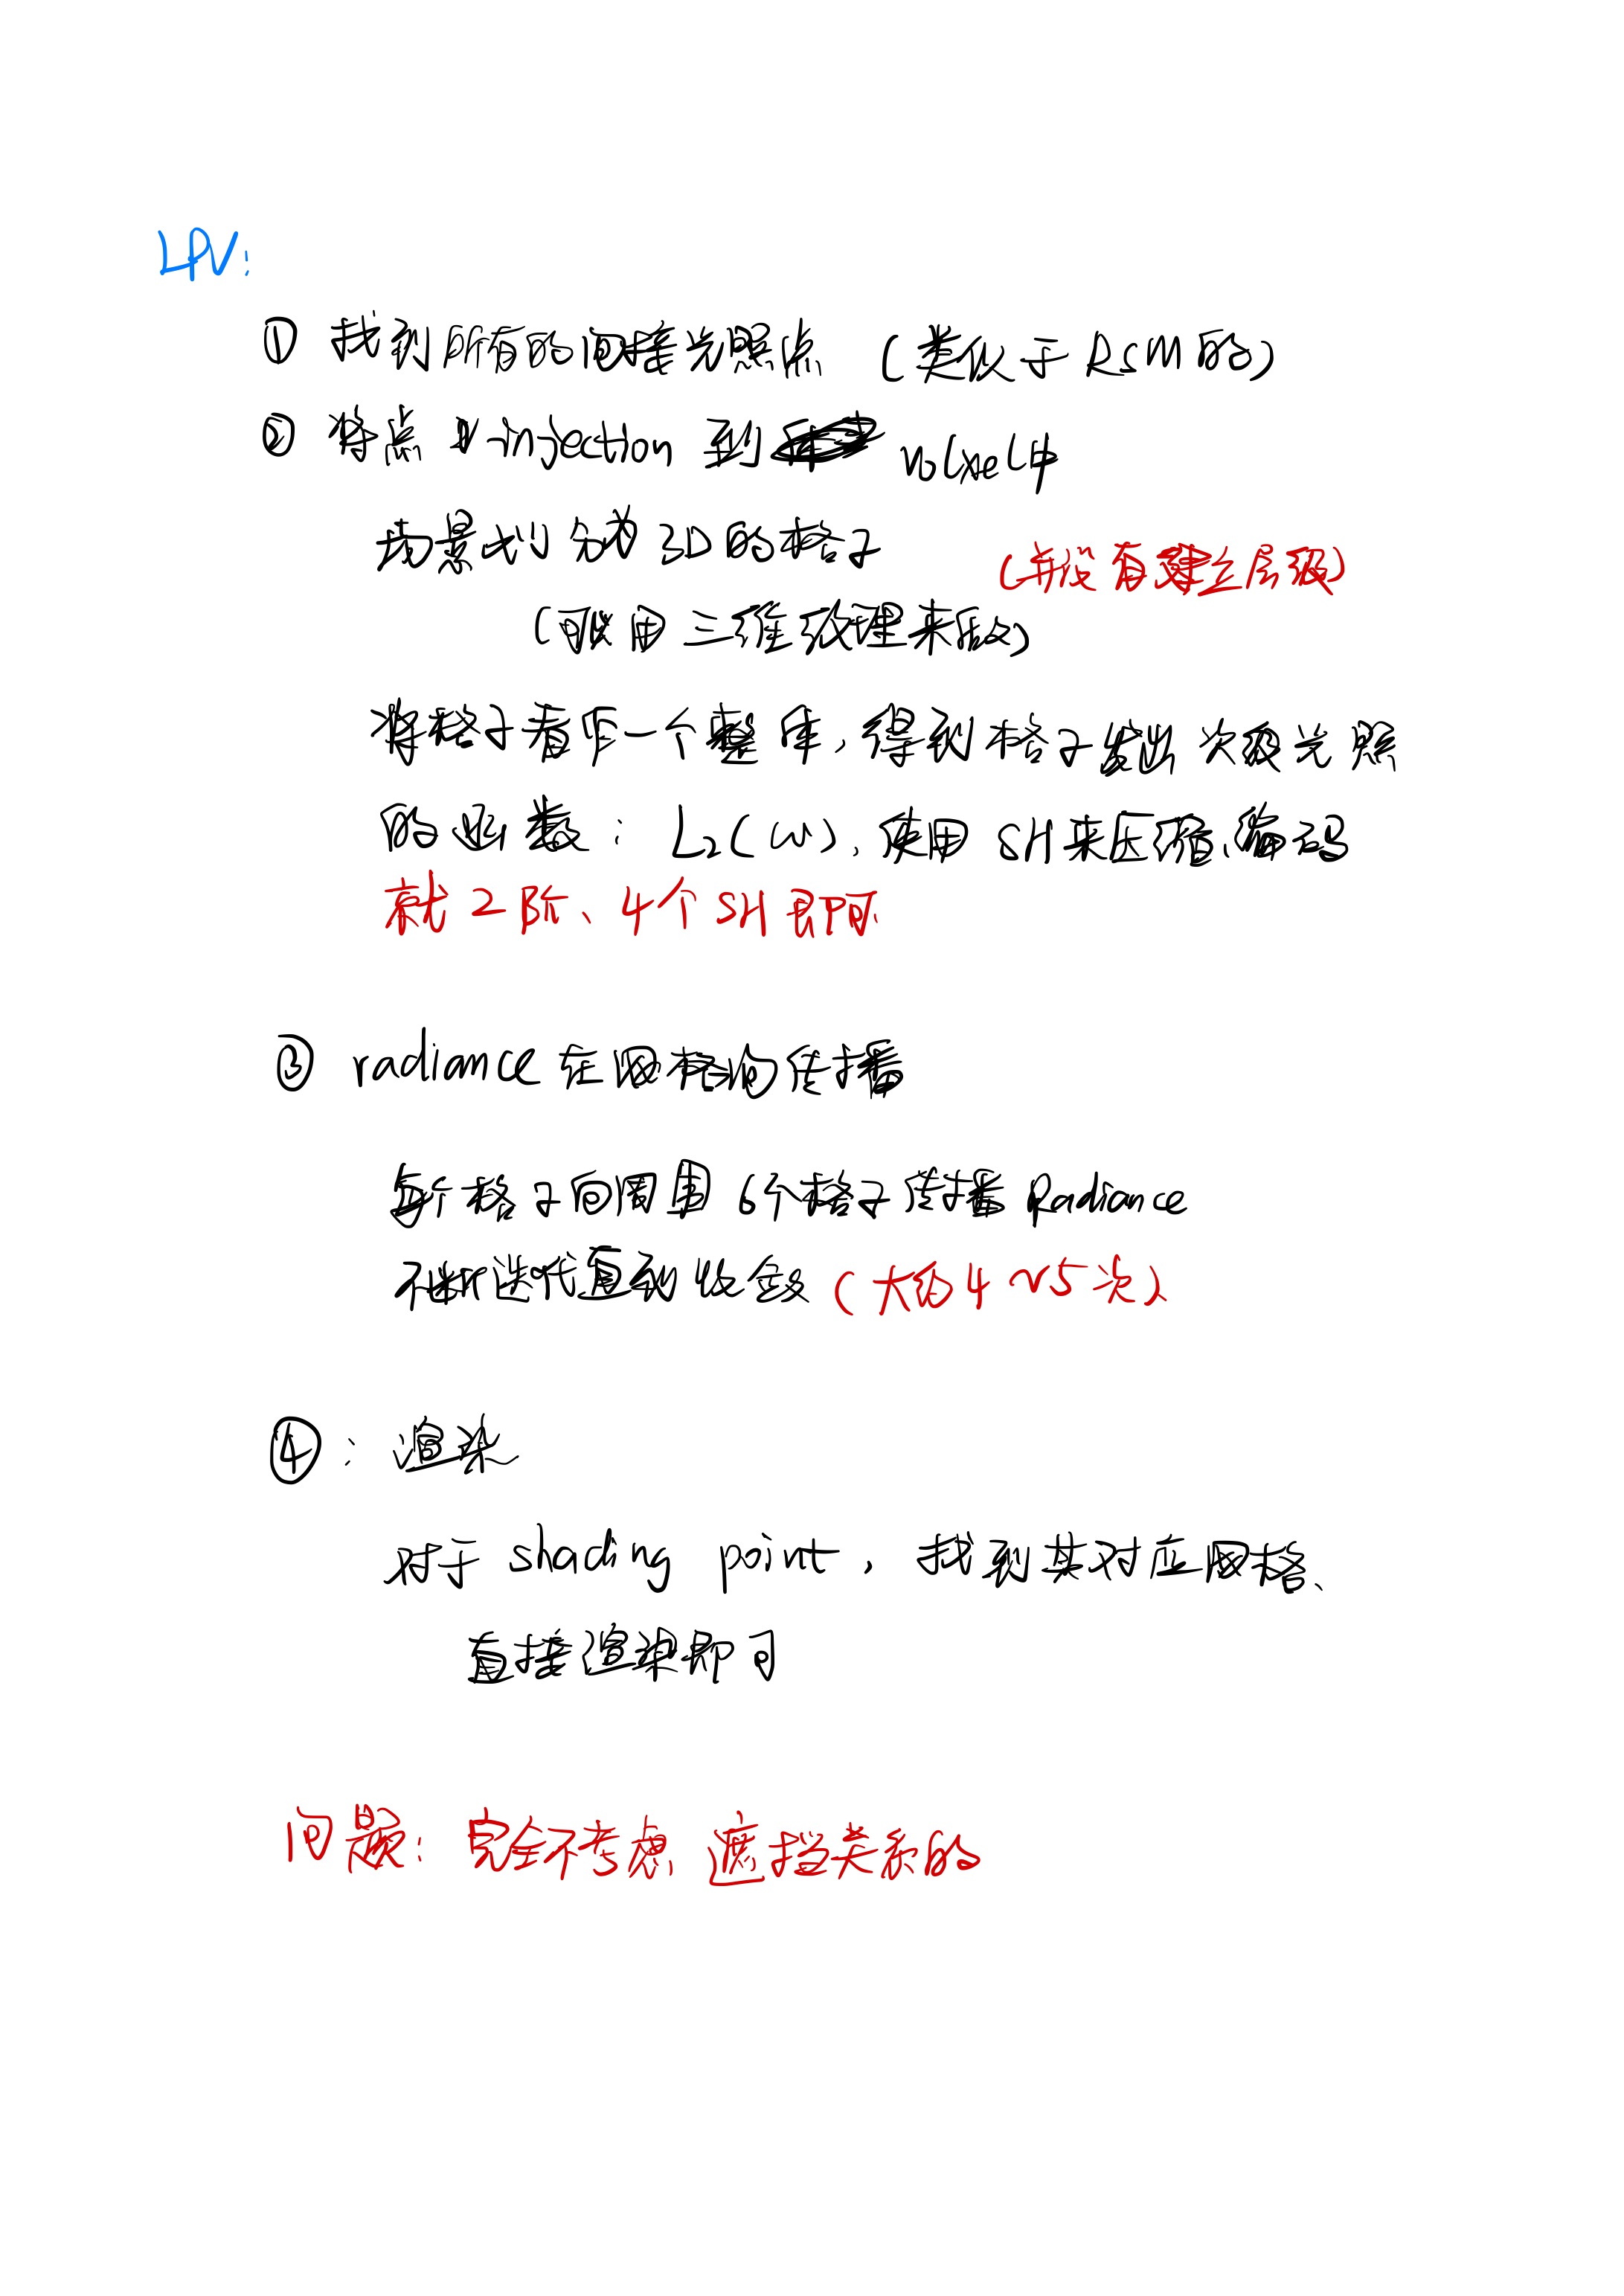 LPV:
① 找到所有的间接光照点 (类似于RSM的)
② 将点 injection 到 volxel中
场景划分为3D的格子
(并没有建立层级)
(可以用三维纹理来放)
将格子看作一个整体,得到格子发出次级光照
的函数: L₂(ω), 使用SH来压缩、编码
就2阶、4个SH即可.
③ radiance 在网格间传播
每个格子向周围6个格子传播 Radiance
不断迭代直到收敛 (大约4~5次)
④: 渲染
对于 shading point, 找到其对应网格、
直接渲染即可
问题: 完全不考虑 遮挡关系的